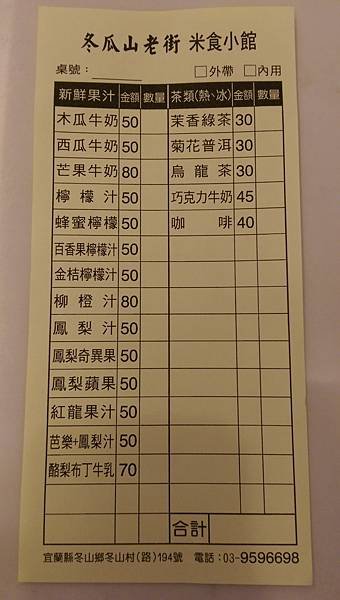 冬瓜山老街 米食小館
桌號：________ □外帶 □內用
新鮮果汁 金額 數量 茶類(熱、冰) 金額 數量
木瓜牛奶 50 茉香綠茶 30
西瓜牛奶 50 菊花普洱 30
芒果牛奶 80 烏龍茶 30
檸檬汁 50 巧克力牛奶 45
蜂蜜檸檬 50 咖啡 40
百香果檸檬汁 50
金桔檸檬汁 50
柳橙汁 80
鳳梨汁 50
鳳梨奇異果 50
鳳梨蘋果 50
紅龍果汁 50
芭樂+鳳梨汁 50
酪梨布丁牛乳 70
合計
宜蘭縣冬山鄉冬山村(路)194號 電話：03-9596698